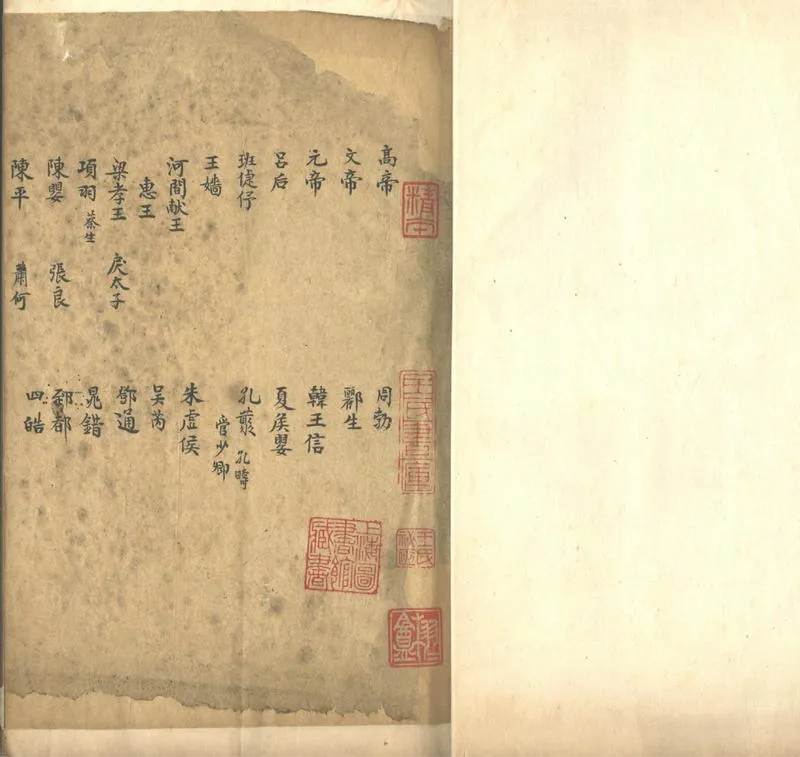 高帝
文帝
元帝
吕后
班倢仔
王嬙
河間献王
惠王
梁孝王 戾太子
項羽 蔡生
陳嬰 張良
陳平 蕭何
周勃
酈生
韓王信
夏侯嬰
孔藂 孔
管少卿
朱虛侯
吴芮
鄧通
晁錯
郅都
四皓
精本
王氏
上海圖書館藏書